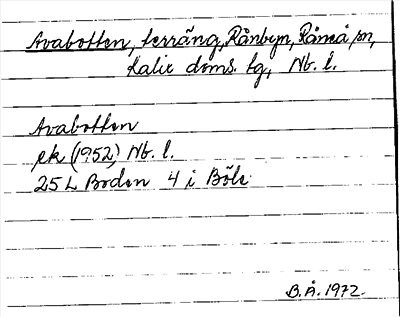 Avabotten, terräng, Rånbyn, Råneå sn,
Kalix doms. tg, Nb. l.
Avabotten
ek (1952) Nb. l.
25 L Boden 4 i Böle
B.Å. 1972.